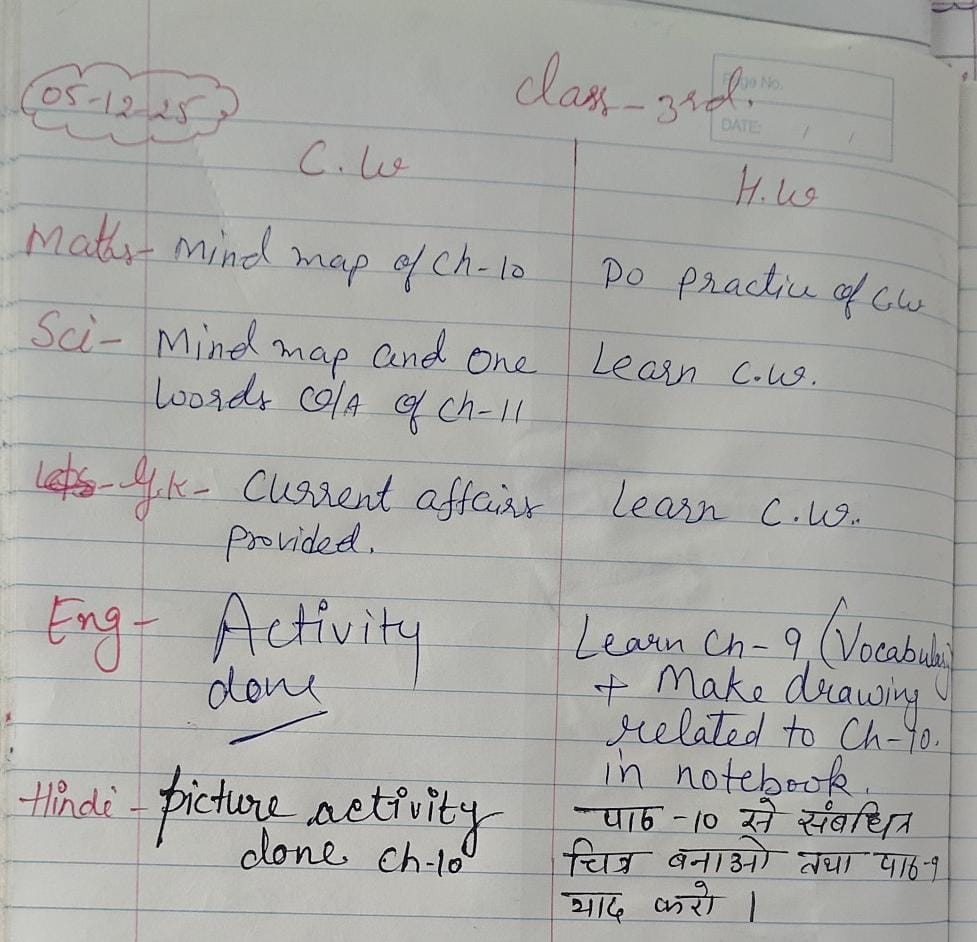 05-12-25
Class - 3rd.
Page No.
DATE: / /
C.W
H.W
Maths - Mind map of Ch-10
Do practice of C.W
Sci - Mind map and One
Learn C.W.
Words Q/A of Ch-11
G.K - Current affairs
Learn C.W.
provided.
Eng - Activity
Learn Ch-9 (Vocabulary)
done
+ Make drawing
related to Ch-10.
in notebook.
Hindi - picture activity
पाठ -10 से संबधित
done Ch-10
चित्र बनाओ तथा पाठ-9
याद करो ।